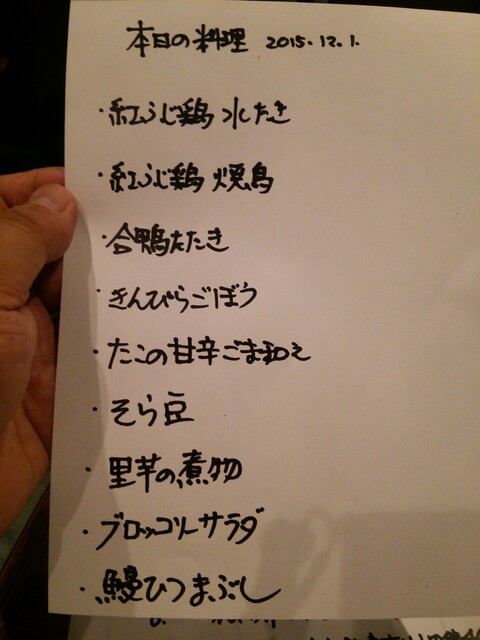 本日の料理 2015.12.1.
・紅ふじ鶏 水たき
・紅ふじ鶏 焼鳥
・合鴨たたき
・きんぴらごぼう
・たこの甘辛ごま和え
・そら豆
・里芋の煮物
・ブロッコリーサラダ
・鰻ひつまぶし